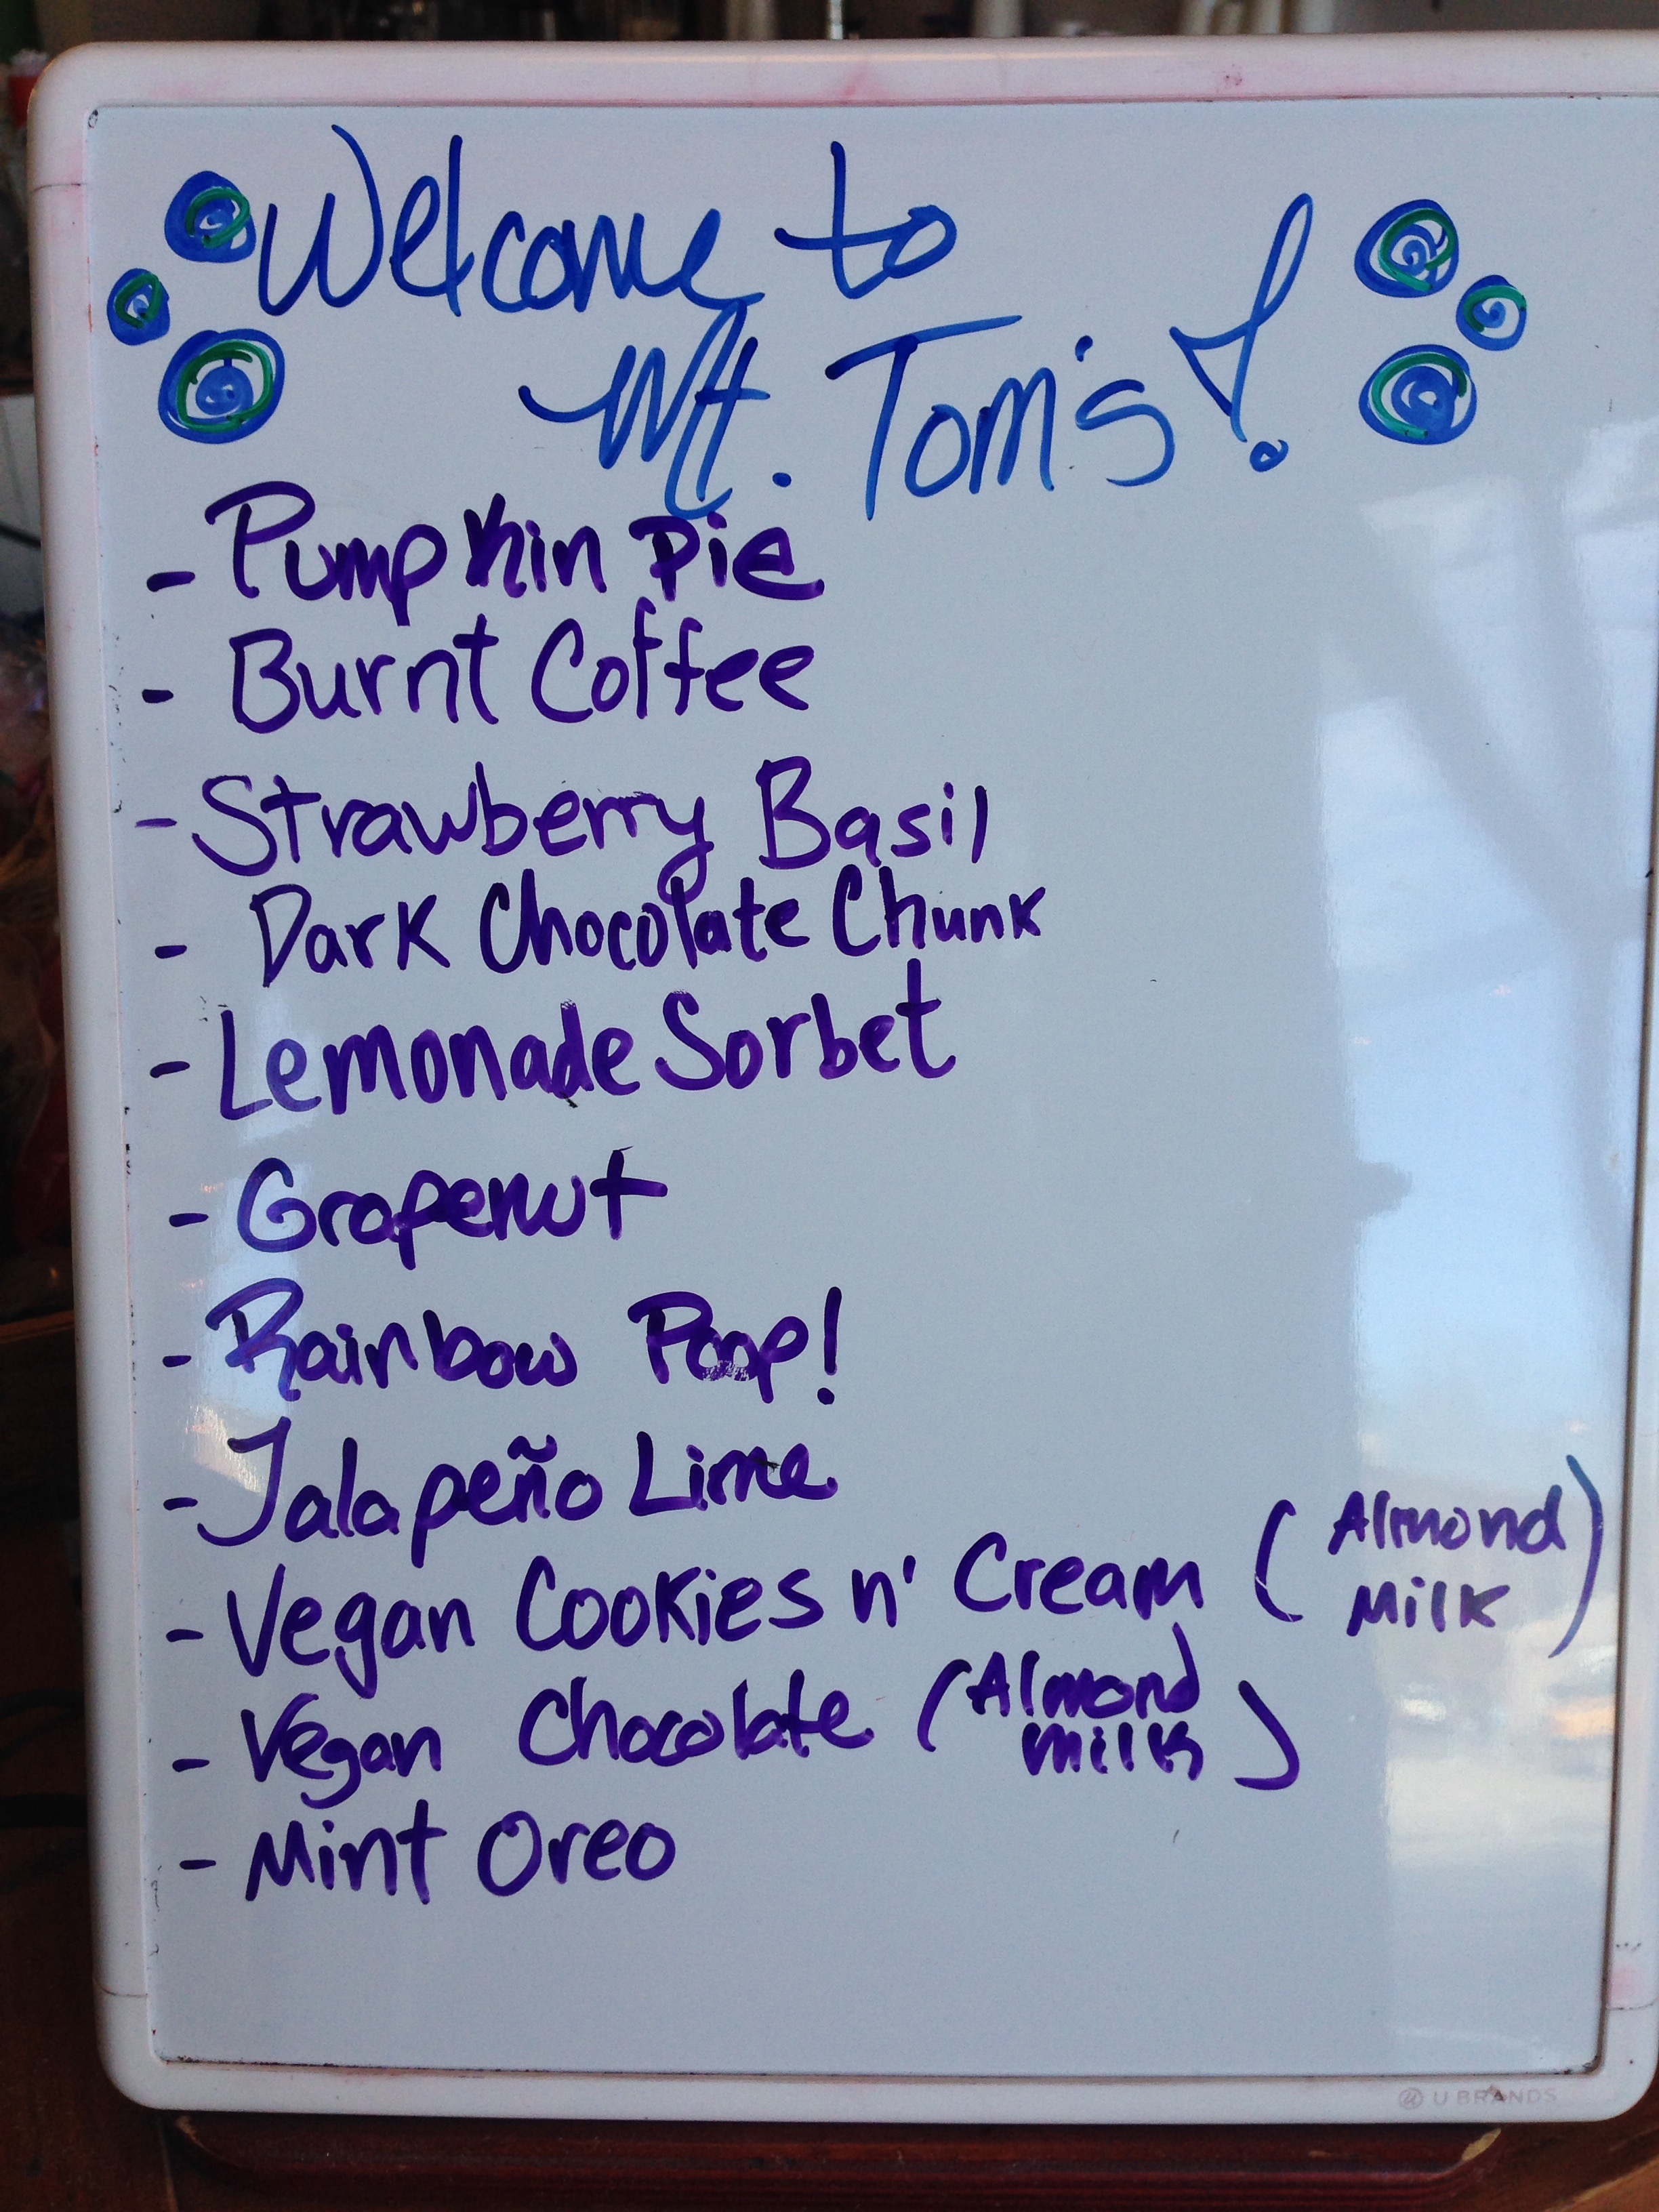 Welcome to
Mt. Tom's!
- Pumpkin Pie
- Burnt Coffee
- Strawberry Basil
- Dark Chocolate Chunk
- Lemonade Sorbet
- Grapenut
- Rainbow Poop!
- Jalapeño Lime
- Vegan Cookies n' Cream (Almond
Milk)
- Vegan Chocolate (Almond
Milk)
- Mint Oreo
U BRANDS